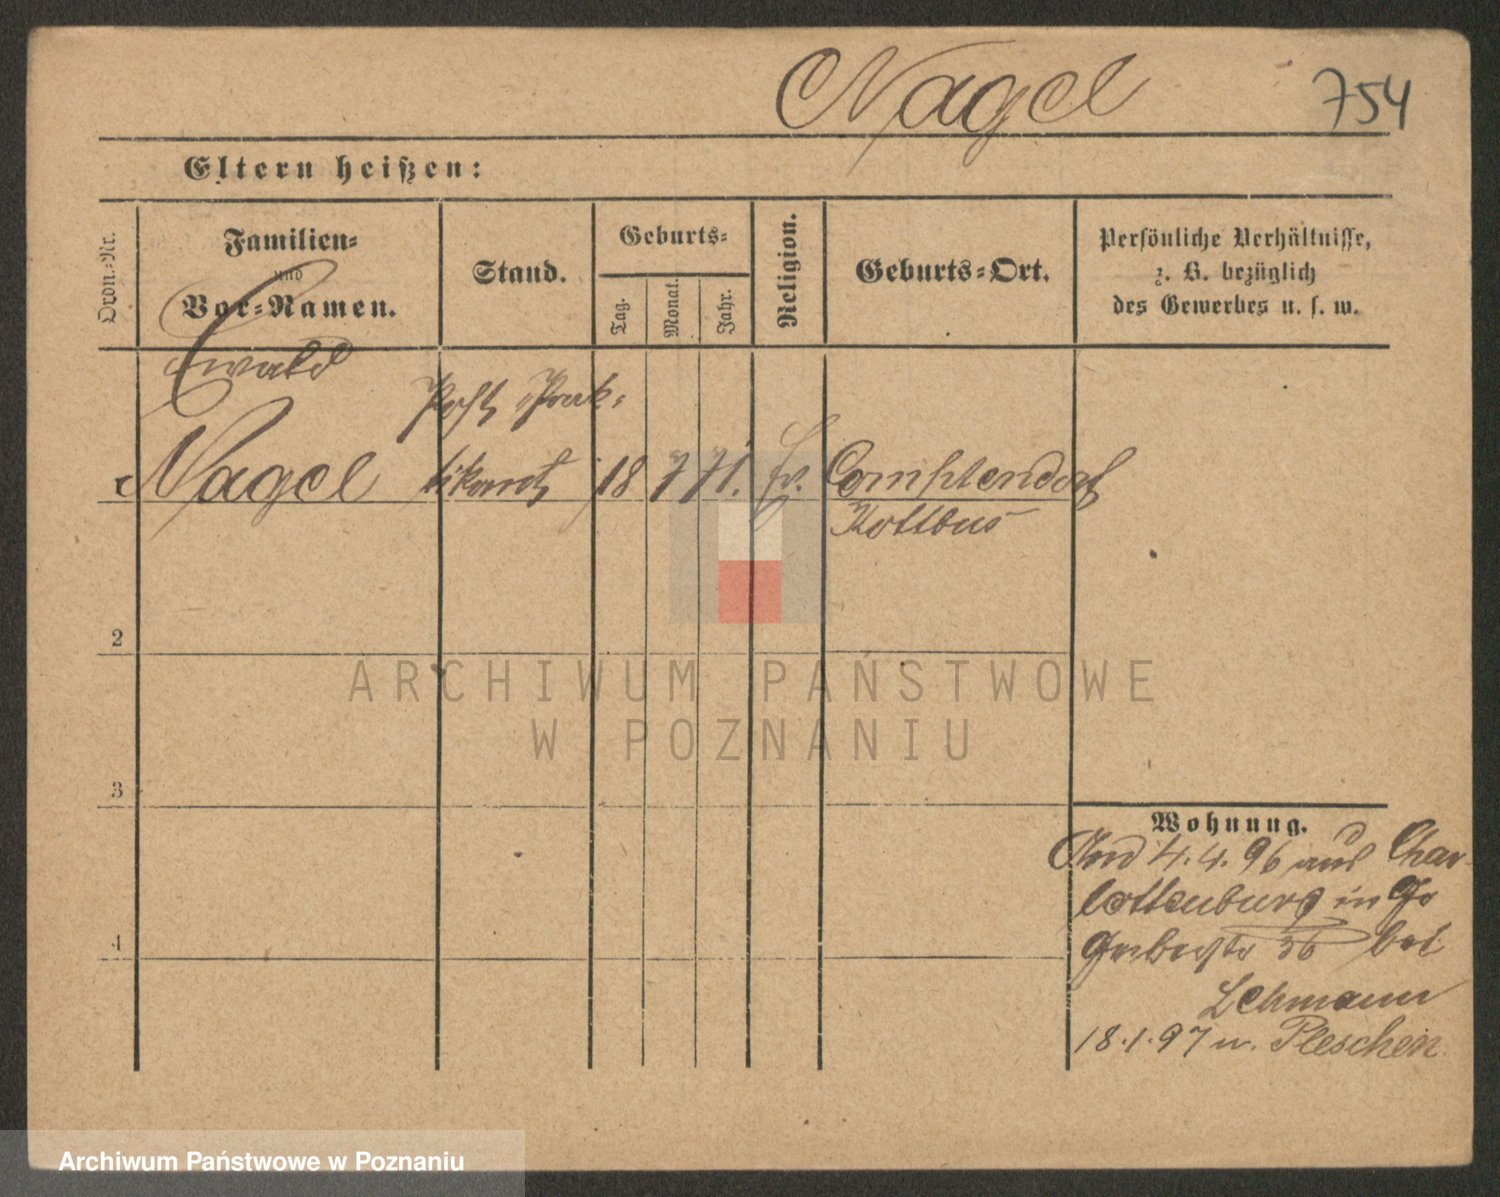 Nagel 754
Eltern heißen:
Ordn.-Nr.
Familien-
und
Vor-Namen.
Stand.
Geburts-
Tag.
Monat.
Jahr.
Religion.
Geburts-Ort.
Persönliche Verhältnisse,
z. B. bezüglich
des Gewerbes u. s. w.
Ewald
Post Prak-
1 Nagel tikant 18 7 71. ev. Comptendorf
Kottbus
2
3
4
Wohnung.
4.4.96 aus Char-
lottenburg in
36 bei
Lehmann
18.1.97 n. Pleschen
ARCHIWUM PAŃSTWOWE
W POZNANIU
Archiwum Państwowe w Poznaniu